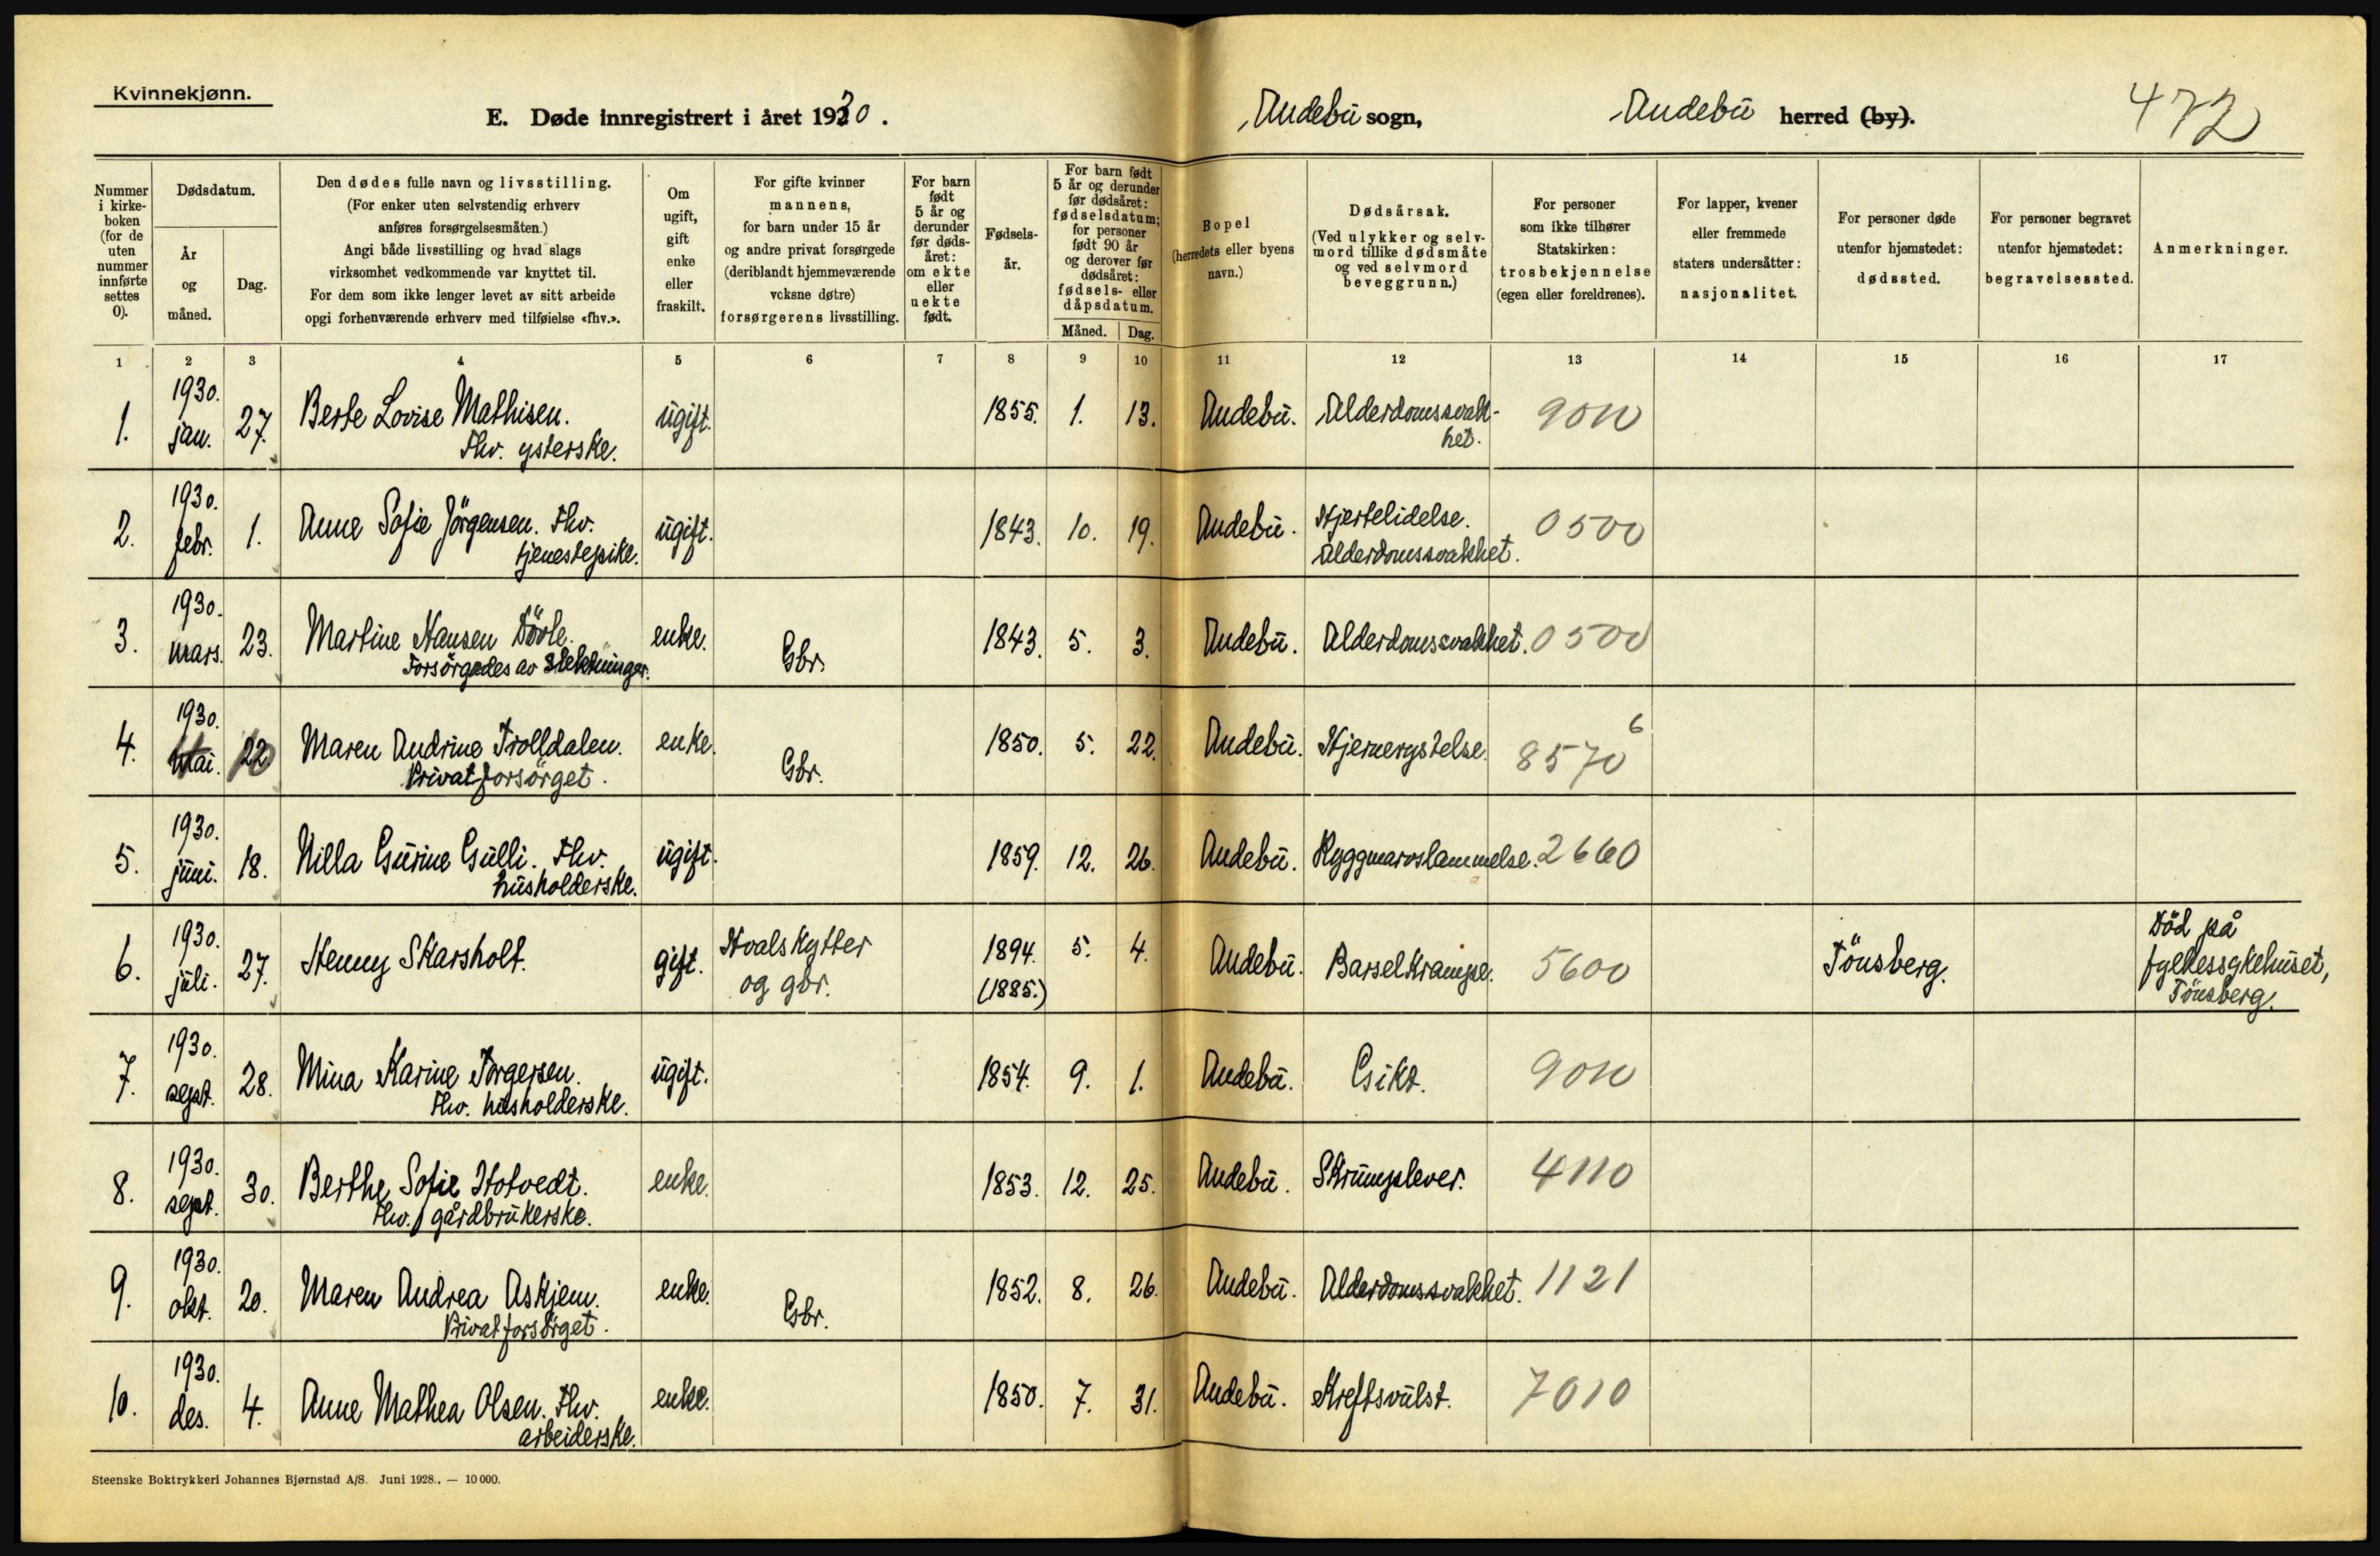 Kvinnekjønn.
E. Døde innregistrert i året 1930.
Andebu sogn,
Andebu herred (by).
472
Nummer i kirke-boken (for de uten nummer innførte settes 0).
Dødsdatum.
År og måned.
Dag.
Den dødes fulle navn og livsstilling.
(For enker uten selvstendig erhverv
anføres forsørgelsesmåten.)
Angi både livsstilling og hvad slags
virksomhet vedkommende var knyttet til.
For dem som ikke lenger levet av sitt arbeide
opgi forhenværende erhverv med tilføielse «fhv.».
Om ugift, gift enke eller fraskilt.
For gifte kvinner
mannens,
for barn under 15 år
og andre privat forsørgede
(deriblandt hjemmeværende
voksne døtre)
forsørgerens livsstilling.
For barn født 5 år og derunder før døds-året: om ekte eller uekte født.
Fødsels-år.
For barn født
5 år og derunder
før dødsåret:
fødselsdatum;
for personer
født 90 år
og derover før
dødsåret:
fødsels- eller
dåpsdatum.
Måned.
Dag.
Bopel
(herredets eller byens
navn.)
Dødsårsak.
(Ved ulykker og selv-
mord tillike dødsmåte
og ved selvmord
beveggrunn.)
For personer
som ikke tilhører
Statskirken:
trosbekjennelse
(egen eller foreldrenes).
For lapper, kvener
eller fremmede
staters undersåtter:
nasjonalitet.
For personer døde
utenfor hjemstedet:
dødssted.
For personer begravet
utenfor hjemstedet:
begravelsessted.
Anmerkninger.
1 2 3 4 5 6 7 8 9 10 11 12 13 14 15 16 17
1. 1930. jan. 27. Berte Lovise Mathisen. ugift. 1855. 1. 13. Andebu. Alderdomssvak- 9010
Fhv. ysterske. het.
2. 1930. febr. 1. Anne Sofie Jörgensen. Fhv. ugift. 1843. 10. 19. Andebu. Hjertelidelse. 0500
tjenestepike. Alderdomssvakhet.
3. 1930. mars. 23. Martine Hansen Dövle. enke. Gbr. 1843. 5. 3. Andebu. Alderdomssvakhet. 0500
Forsörgedes av slektninger.
4. 1930. mai. 22 10 Maren Andrine Trolldalen. enke. Gbr. 1850. 5. 22. Andebu. Hjernerystelse. 8570 6
Privat forsörget.
5. 1930. juni. 18. Nilla Gurine Gulli. Fhv. ugift. 1859. 12. 26. Andebu. Ryggmarvslammelse. 2660
husholderske.
6. 1930. juli. 27. Henny Skarsholt. gift. Hvalskytter og gbr. 1894. (1885.) 5. 4. Andebu. Barselkrampe. 5600 Tönsberg. Död på
fylkessykehuset,
Tönsberg.
7. 1930. sept. 28. Mina Karine Torgersen. ugift. 1854. 9. 1. Andebu. Gikt. 9010
Fhv. husholderske.
8. 1930. sept. 30. Berthe Sofie Hotvedt. enke. 1853. 12. 25. Andebu. Skrumplever. 4110
Fhv. gårdbrukerske.
9. 1930. okt. 20. Maren Andrea Askjem. enke. Gbr. 1852. 8. 26. Andebu. Alderdomssvakhet. 1121
Privat forsörget.
10. 1930. des. 4. Anne Mathea Olsen. Fhv. enke. 1850. 7. 31. Andebu. Kreftsvulst. 7010
arbeiderske.
Steenske Boktrykkeri Johannes Bjørnstad A/S. Juni 1928.. — 10 000.